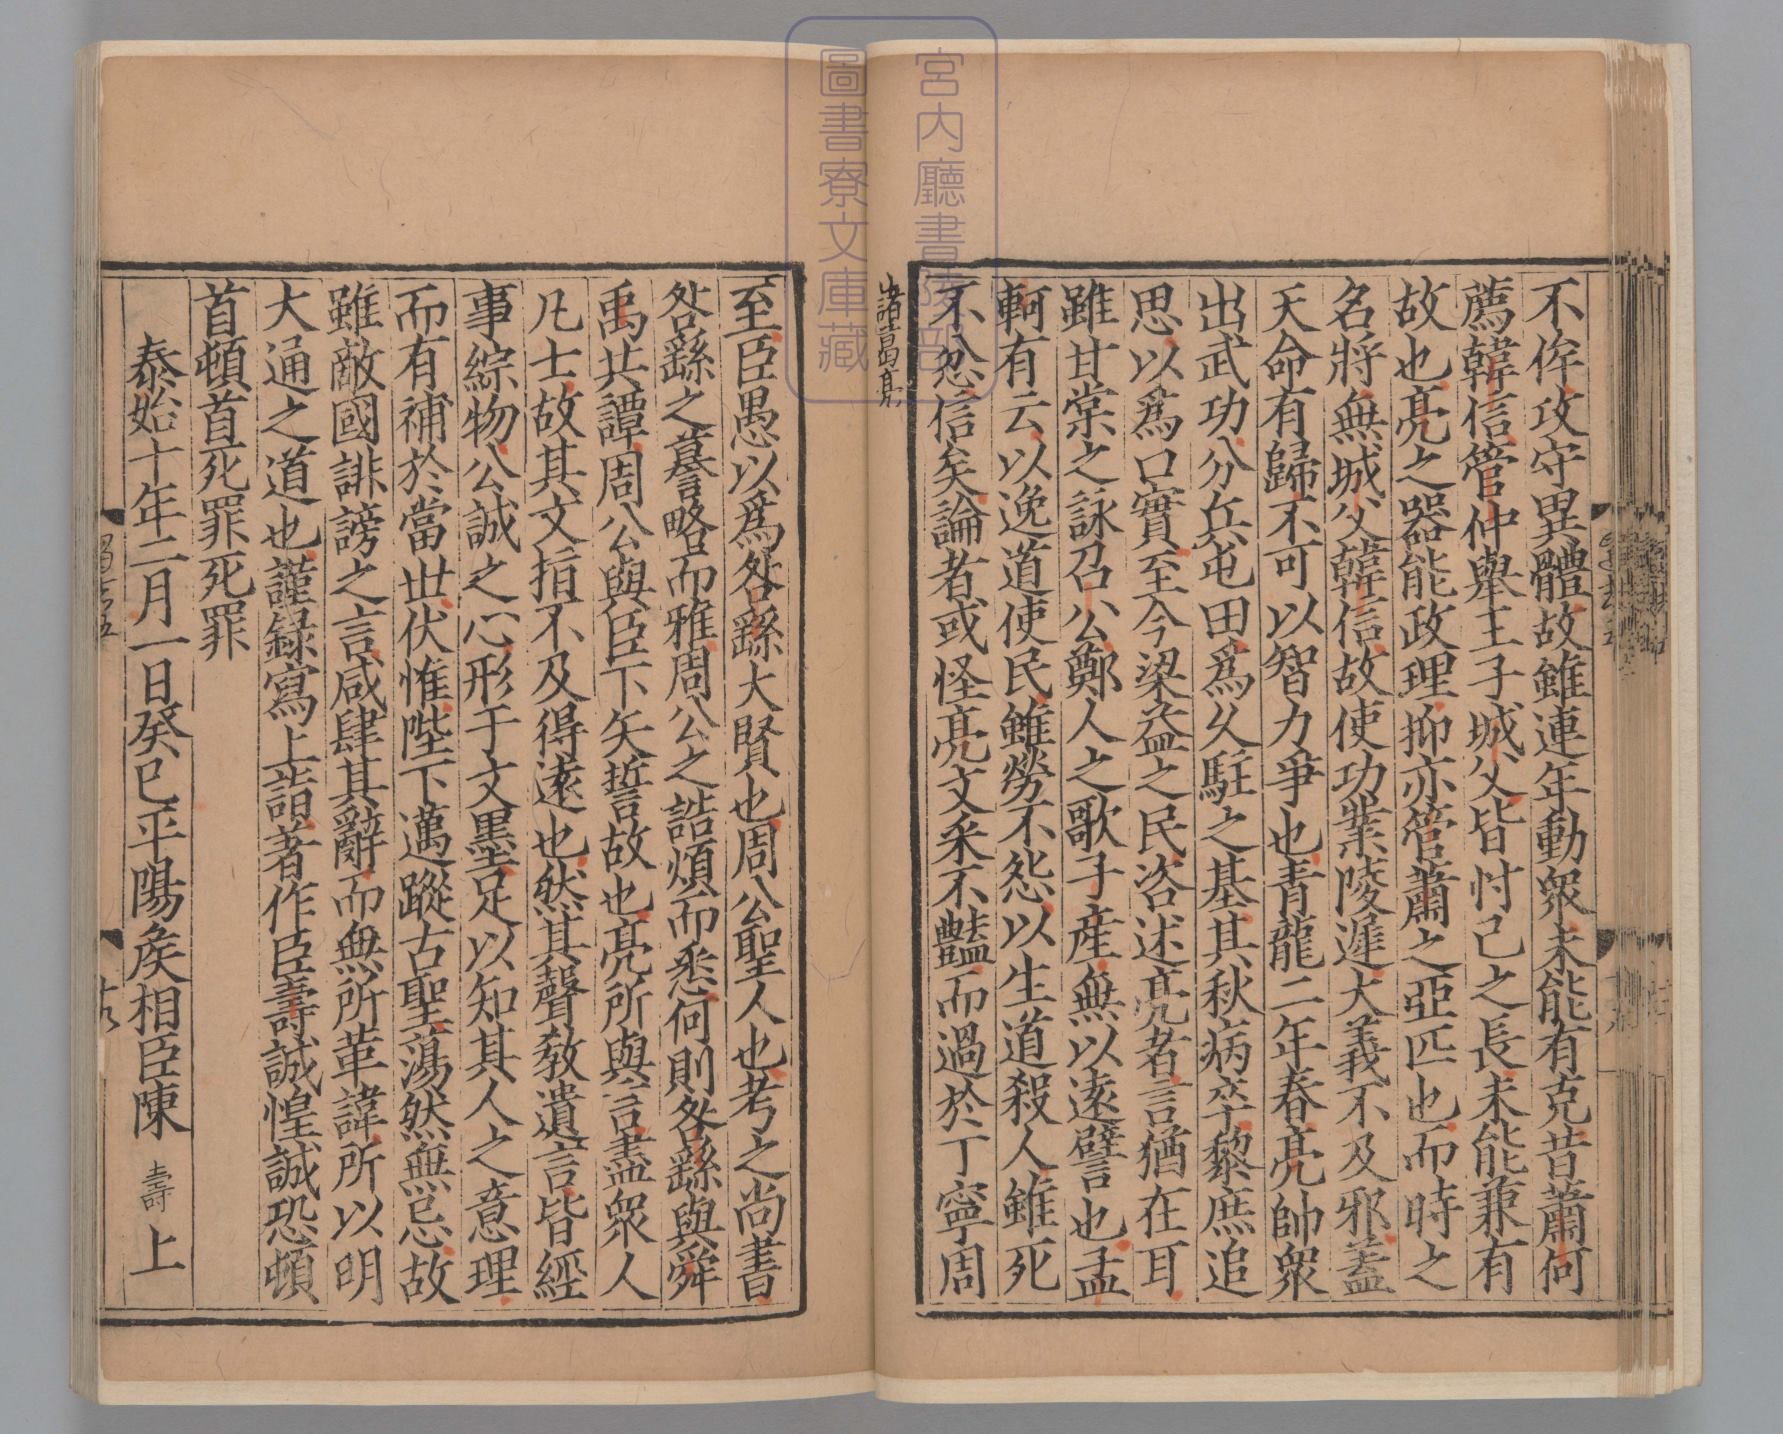 不侔攻守異體故雖連年動衆未能有克昔蕭何
薦韓信管仲舉王子城父皆忖己之長未能兼有
故也亮之器能政理抑亦管蕭之亞匹也而時之
名將無城父韓信故使功業陵遲大義不及邪蓋
天命有歸不可以智力爭也青龍二年春亮帥衆
出武功分兵屯田爲久駐之基其秋病卒黎庶追
思以爲口實至今梁益之民咨述亮者言猶在耳
雖甘棠之詠召公鄭人之歌子産無以遠譬也孟
軻有云以逸道使民雖勞不怨以生道殺人雖死
不忿信矣論者或怪亮文采不豔而過於丁寧周
諸葛亮
至臣愚以爲咎繇大賢也周公聖人也考之尚書
咎繇之謩略而雅周公之誥煩而悉何則咎繇與舜
禹共譚周公與臣下矢誓故也亮所與言盡衆人
凡士故其文指不及得遠也然其聲教遺言皆經
事綜物公誠之心形于文墨足以知其人之意理
而有補於當世伏惟陛下邁蹤古聖蕩然無忌故
雖敵國誹謗之言咸肆其辭而無所革諱所以明
大通之道也謹録寫上詣著作臣壽誠惶誠恐頓
首頓首死罪死罪
泰始十年二月一日癸巳平陽侯相臣陳壽上
宮内廳書陵部
圖書寮文庫藏